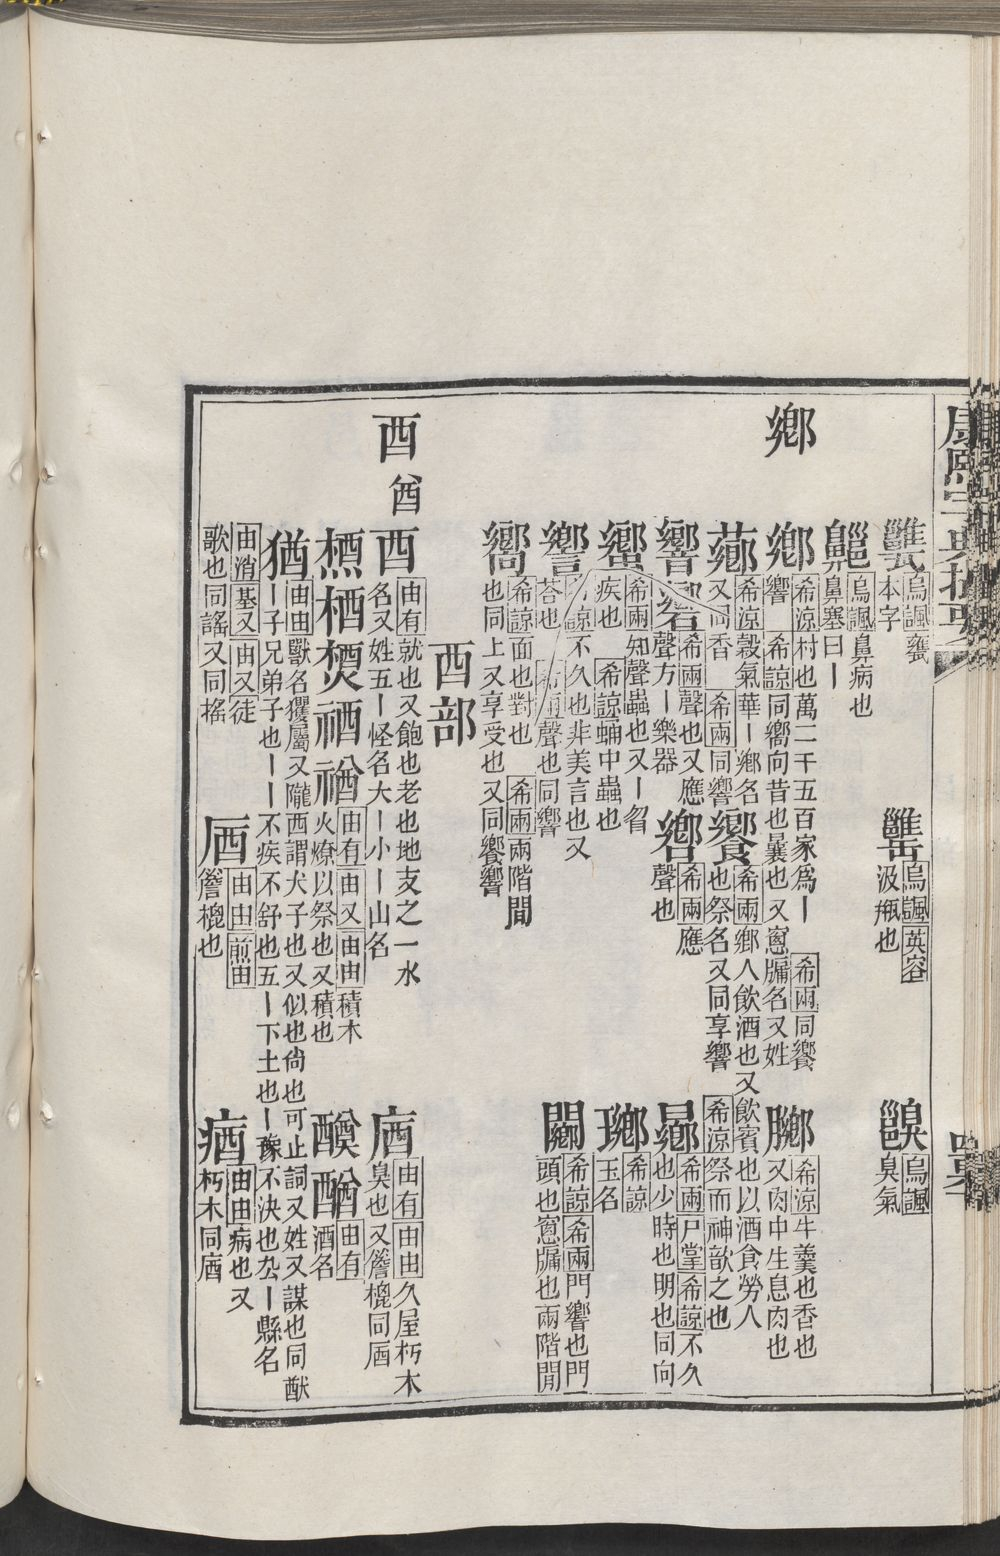 康熙字典撮要
烏諷甕
本字
烏諷英容
汲甁也
烏諷
臭氣
齆 烏諷鼻病也
鼻塞曰丨
鄉
鄉 希涼村也萬二千五百家爲丨 希兩同饗
響 希諒同嚮向昔也曩也又窻牖名又姓
膷 希涼牛羹也香也
又肉中生息肉也
薌 希涼穀氣華丨鄉名
又同香 希兩同響
饗 希兩鄉人飮酒也又飮賓也以酒食勞人
也祭名又同享響 希涼祭而神歆之也
響 希兩聲也又應
聲方丨樂器
希兩應
聲也
希兩戸堂希諒不久
也少時也明也同向
蠁 希兩知聲蟲也又丨曶
疾也 希諒蛹中蟲也
希諒
玉名
不久也非美言也又
荅也 聲也同響
闀 希諒希兩門響也門
頭也窻牖也兩階閒
嚮 希諒面也對也 希兩兩階閒
也同上又享受也又同饗響
酉部
酉 酋
酉 由有就也又飽也老也地支之一水
名又姓五丨怪名大丨小丨山名
庮 由有由由久屋朽木
臭也又簷槐同㢏
槱 楢 由有由又由由積木
火燎以祭也又積也
由有
酒名
猶 由由獸名玃屬又隴西謂犬子也又似也尙也可止詞又姓又謀也同猷
丨子兄弟子也丨丨不疾不舒也五丨下土也丨豫不決也厹丨縣名
由消基又由又徒
歌也同謠又同搖
由由煎由
簷槐也
由由病也又
朽木同庮